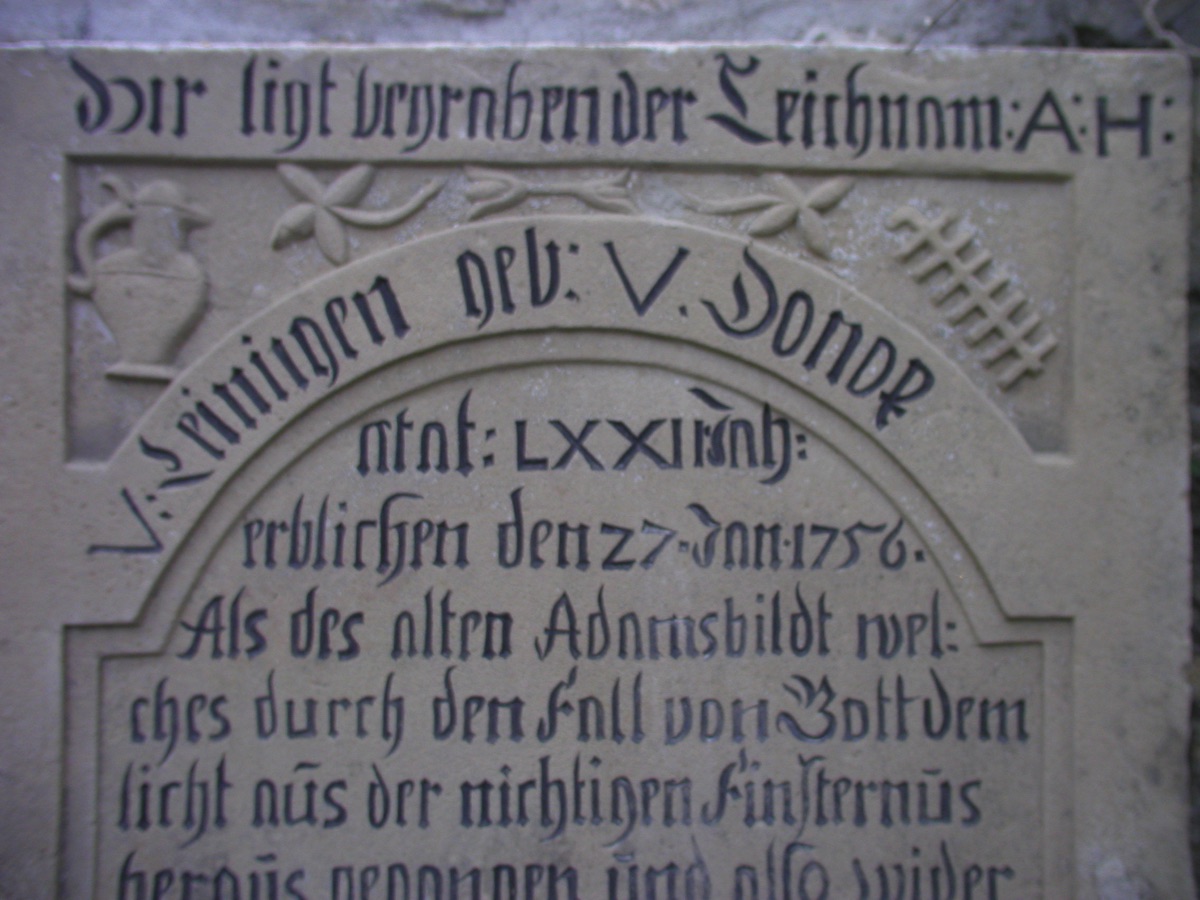 Hir ligt begraben der Leichnam: A: H:
V: Leiningen geb: V. Dondr
atat: LXXI Jah:
erblichen den 27. Jan. 1756.
Als des alten Adamsbildt wel:
ches durch den Fall von Gott dem
licht aus der nichtigen Finsternus
heraus gegangen und also wider